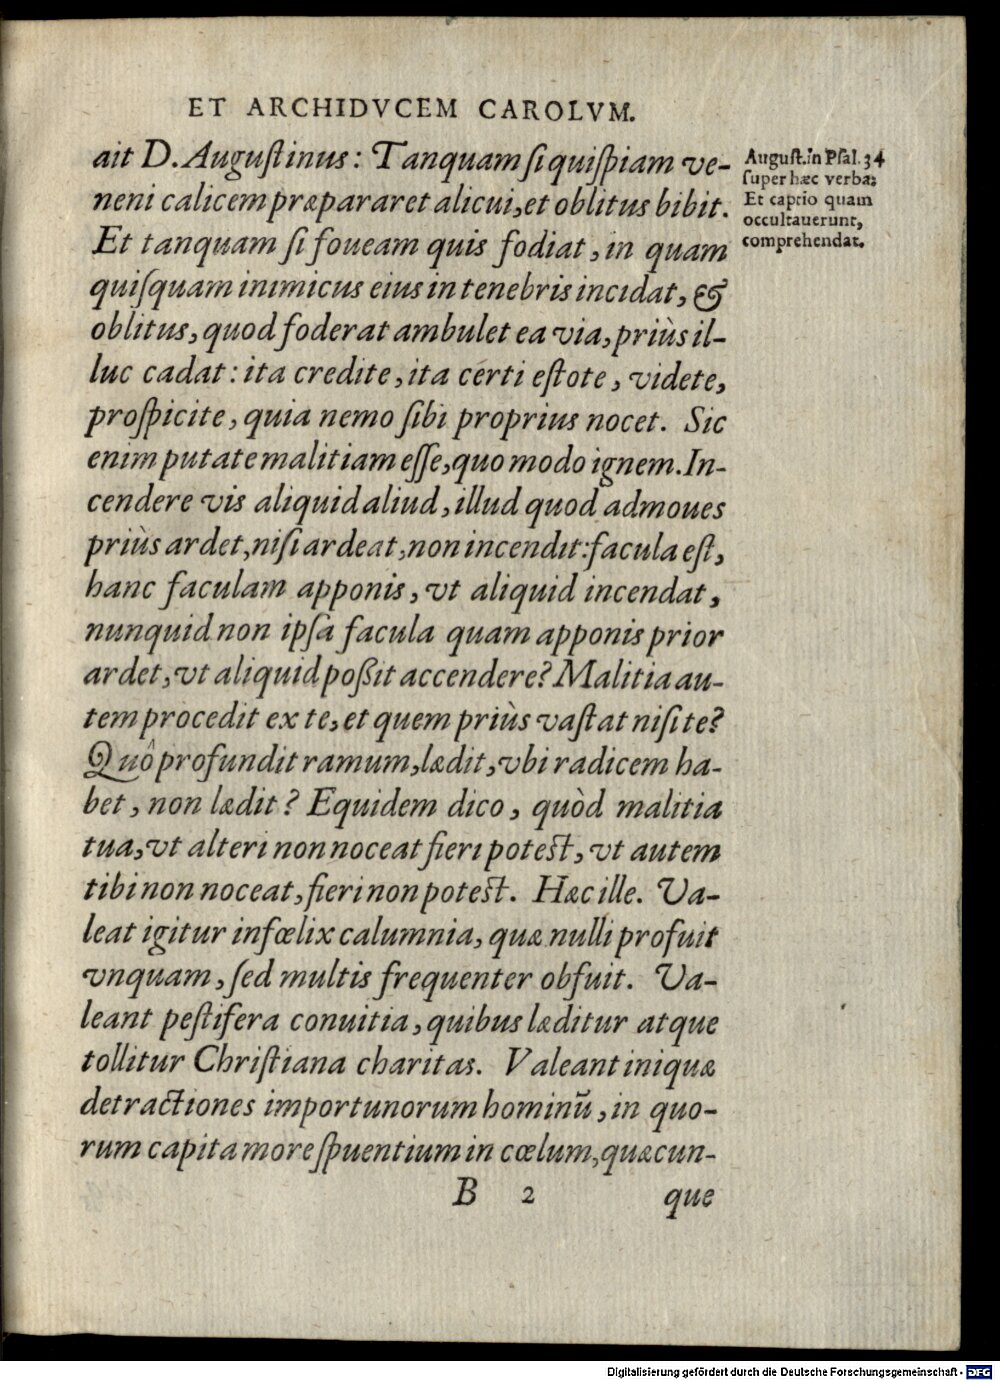 ET ARCHIDVCEM CAROLVM.
ait D. Augustinus: Tanquam si quispiam ve-
neni calicem præpararet alicui, et oblitus bibit.
Et tanquam si foueam quis fodiat, in quam
quisquam inimicus eius in tenebris incidat, &
oblitus, quod foderat ambulet ea via, priùs il-
luc cadat: ita credite, ita certi estote, videte,
prospicite, quia nemo sibi proprius nocet. Sic
enim putate malitiam esse, quo modo ignem. In-
cendere vis aliquid aliud, illud quod admoues
priùs ardet, nisi ardeat, non incendit: facula est,
hanc faculam apponis, vt aliquid incendat,
nunquid non ipsa facula quam apponis prior
ardet, vt aliquid poßit accendere? Malitia au-
tem procedit ex te, et quem priùs vastat nisi te?
Quô profundit ramum, lædit, vbi radicem ha-
bet, non lædit? Equidem dico, quòd malitia
tua, vt alteri non noceat fieri potest, vt autem
tibi non noceat, fieri non potest. Hæc ille. Va-
leat igitur infœlix calumnia, quæ nulli profuit
vnquam, sed multis frequenter obfuit. Va-
leant pestifera conuitia, quibus læditur atque
tollitur Christiana charitas. Valeant iniquæ
detractiones importunorum hominū, in quo-
rum capita more spuentium in cœlum, quæcun-
B 2 que
August. in Psal. 34
super hæc verba:
Et captio quam
occultauerunt,
comprehendat.
Digitalisierung gefördert durch die Deutsche Forschungsgemeinschaft - DFG